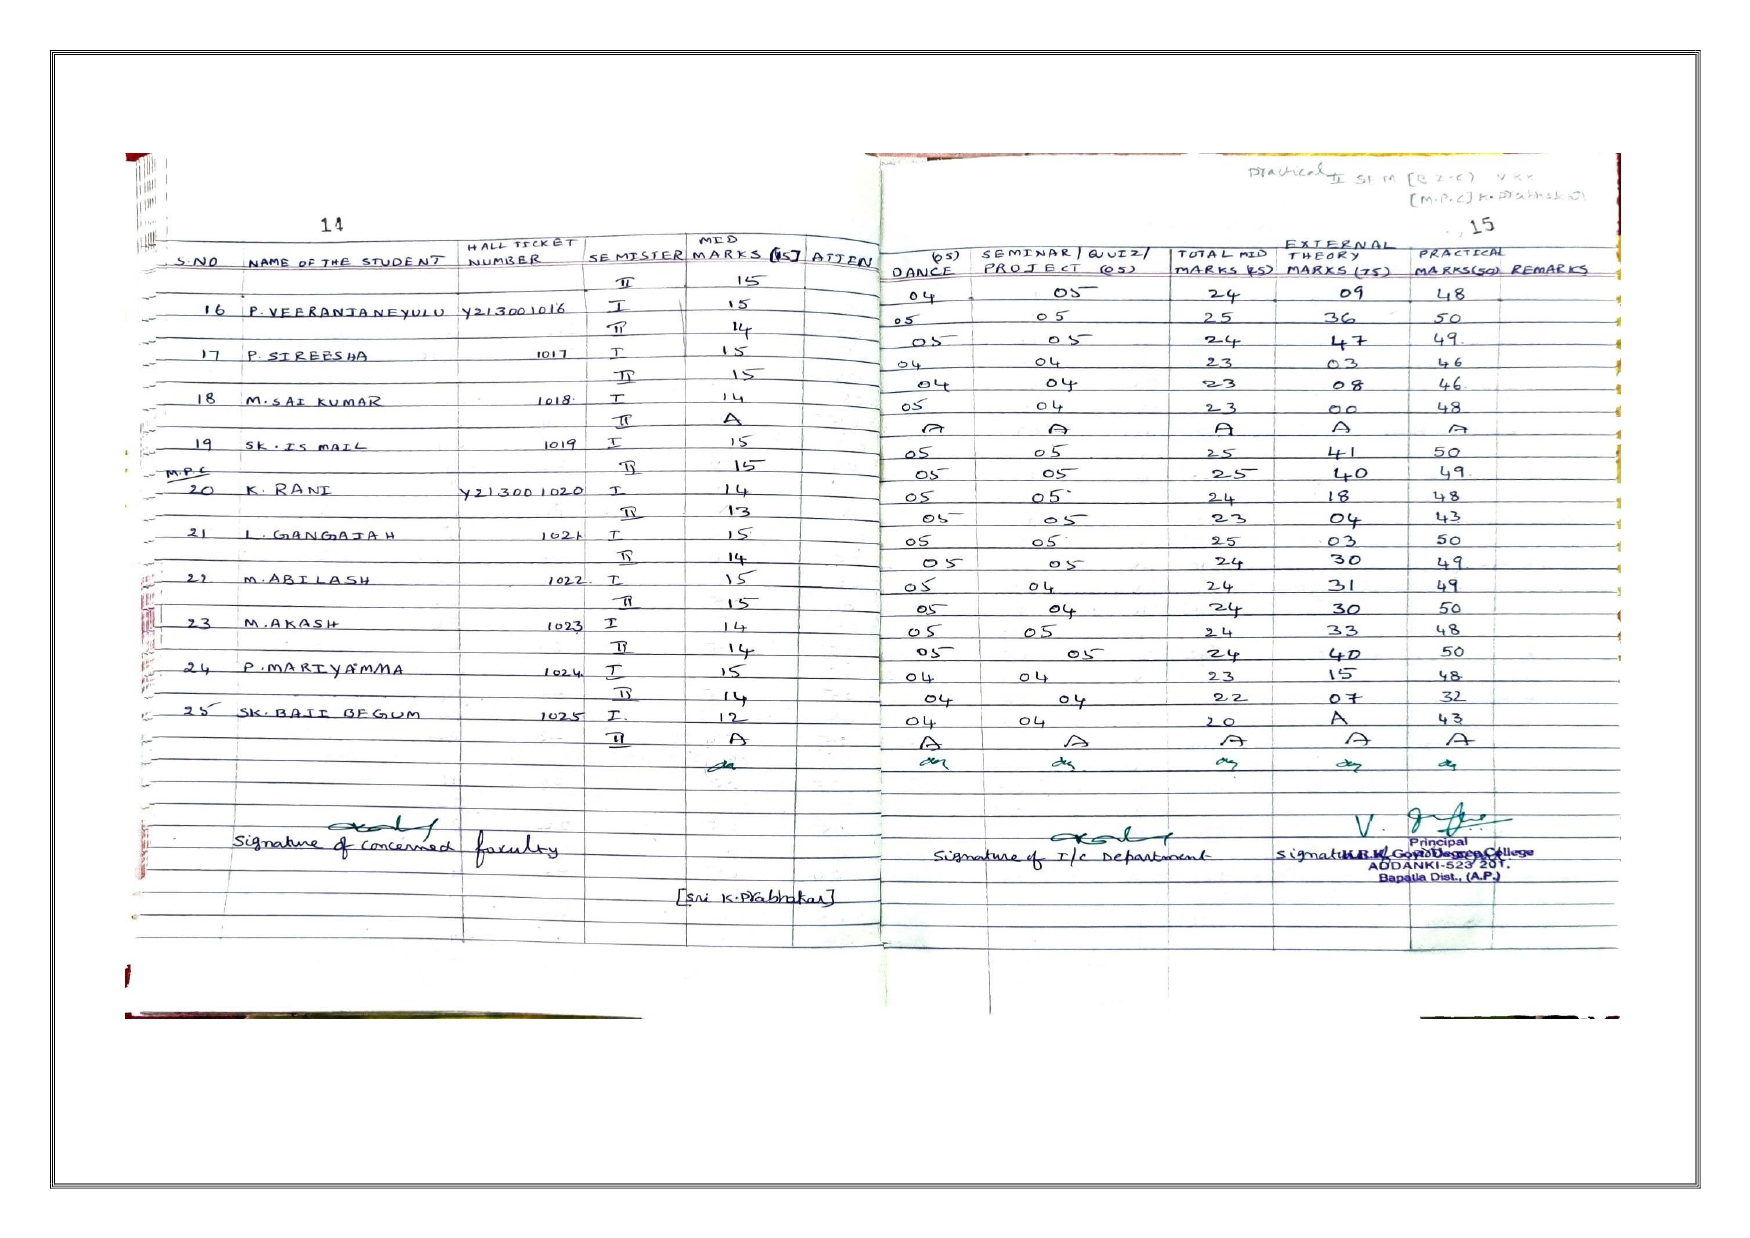 Practical II SEM [B.Z.C) VKK
[M.P.C] K.Prabhakar
14
15
S.NO NAME OF THE STUDENT HALL TICKET NUMBER SEMISTER MID MARKS [15] ATTEN (05) DANCE SEMINAR/QUIZ/ PROJECT (05) TOTAL MID MARKS (25) EXTERNAL THEORY MARKS (75) PRACTICAL MARKS(50) REMARKS
II 15 04 05 24 09 48
16 P.VEERANJANEYULU Y213001016 I 15 05 05 25 36 50
II 14 05 05 24 47 49
17 P. SIREESHA 1017 I 15 04 04 23 03 46
II 15 04 04 23 08 46
18 M.SAI KUMAR 1018 I 14 05 04 23 00 48
II A A A A A A
19 SK.ISMAIL 1019 I 15 05 05 25 41 50
II 15 05 05 25 40 49
M.P.C
20 K. RANI Y213001020 I 14 05 05 24 18 48
II 13 05 05 23 04 43
21 L.GANGAIAH 1021 I 15 05 05 25 03 50
II 14 05 05 24 30 49
22 M.ABILASH 1022 I 15 05 04 24 31 49
II 15 05 04 24 30 50
23 M.AKASH 1023 I 14 05 05 24 33 48
II 14 05 05 24 40 50
24 P.MARIYAMMA 1024 I 15 04 04 23 15 48
II 14 04 04 22 07 32
25 SK.BAJI BEGUM 1025 I 12 04 04 20 A 43
II A A A A A A
Signature of concerned faculty
[Sri K.Prabhakar]
Signature of I/c Department
Signature
Principal
Degree College
ADDANKI-523 201.
Bapatla Dist., (A.P.)